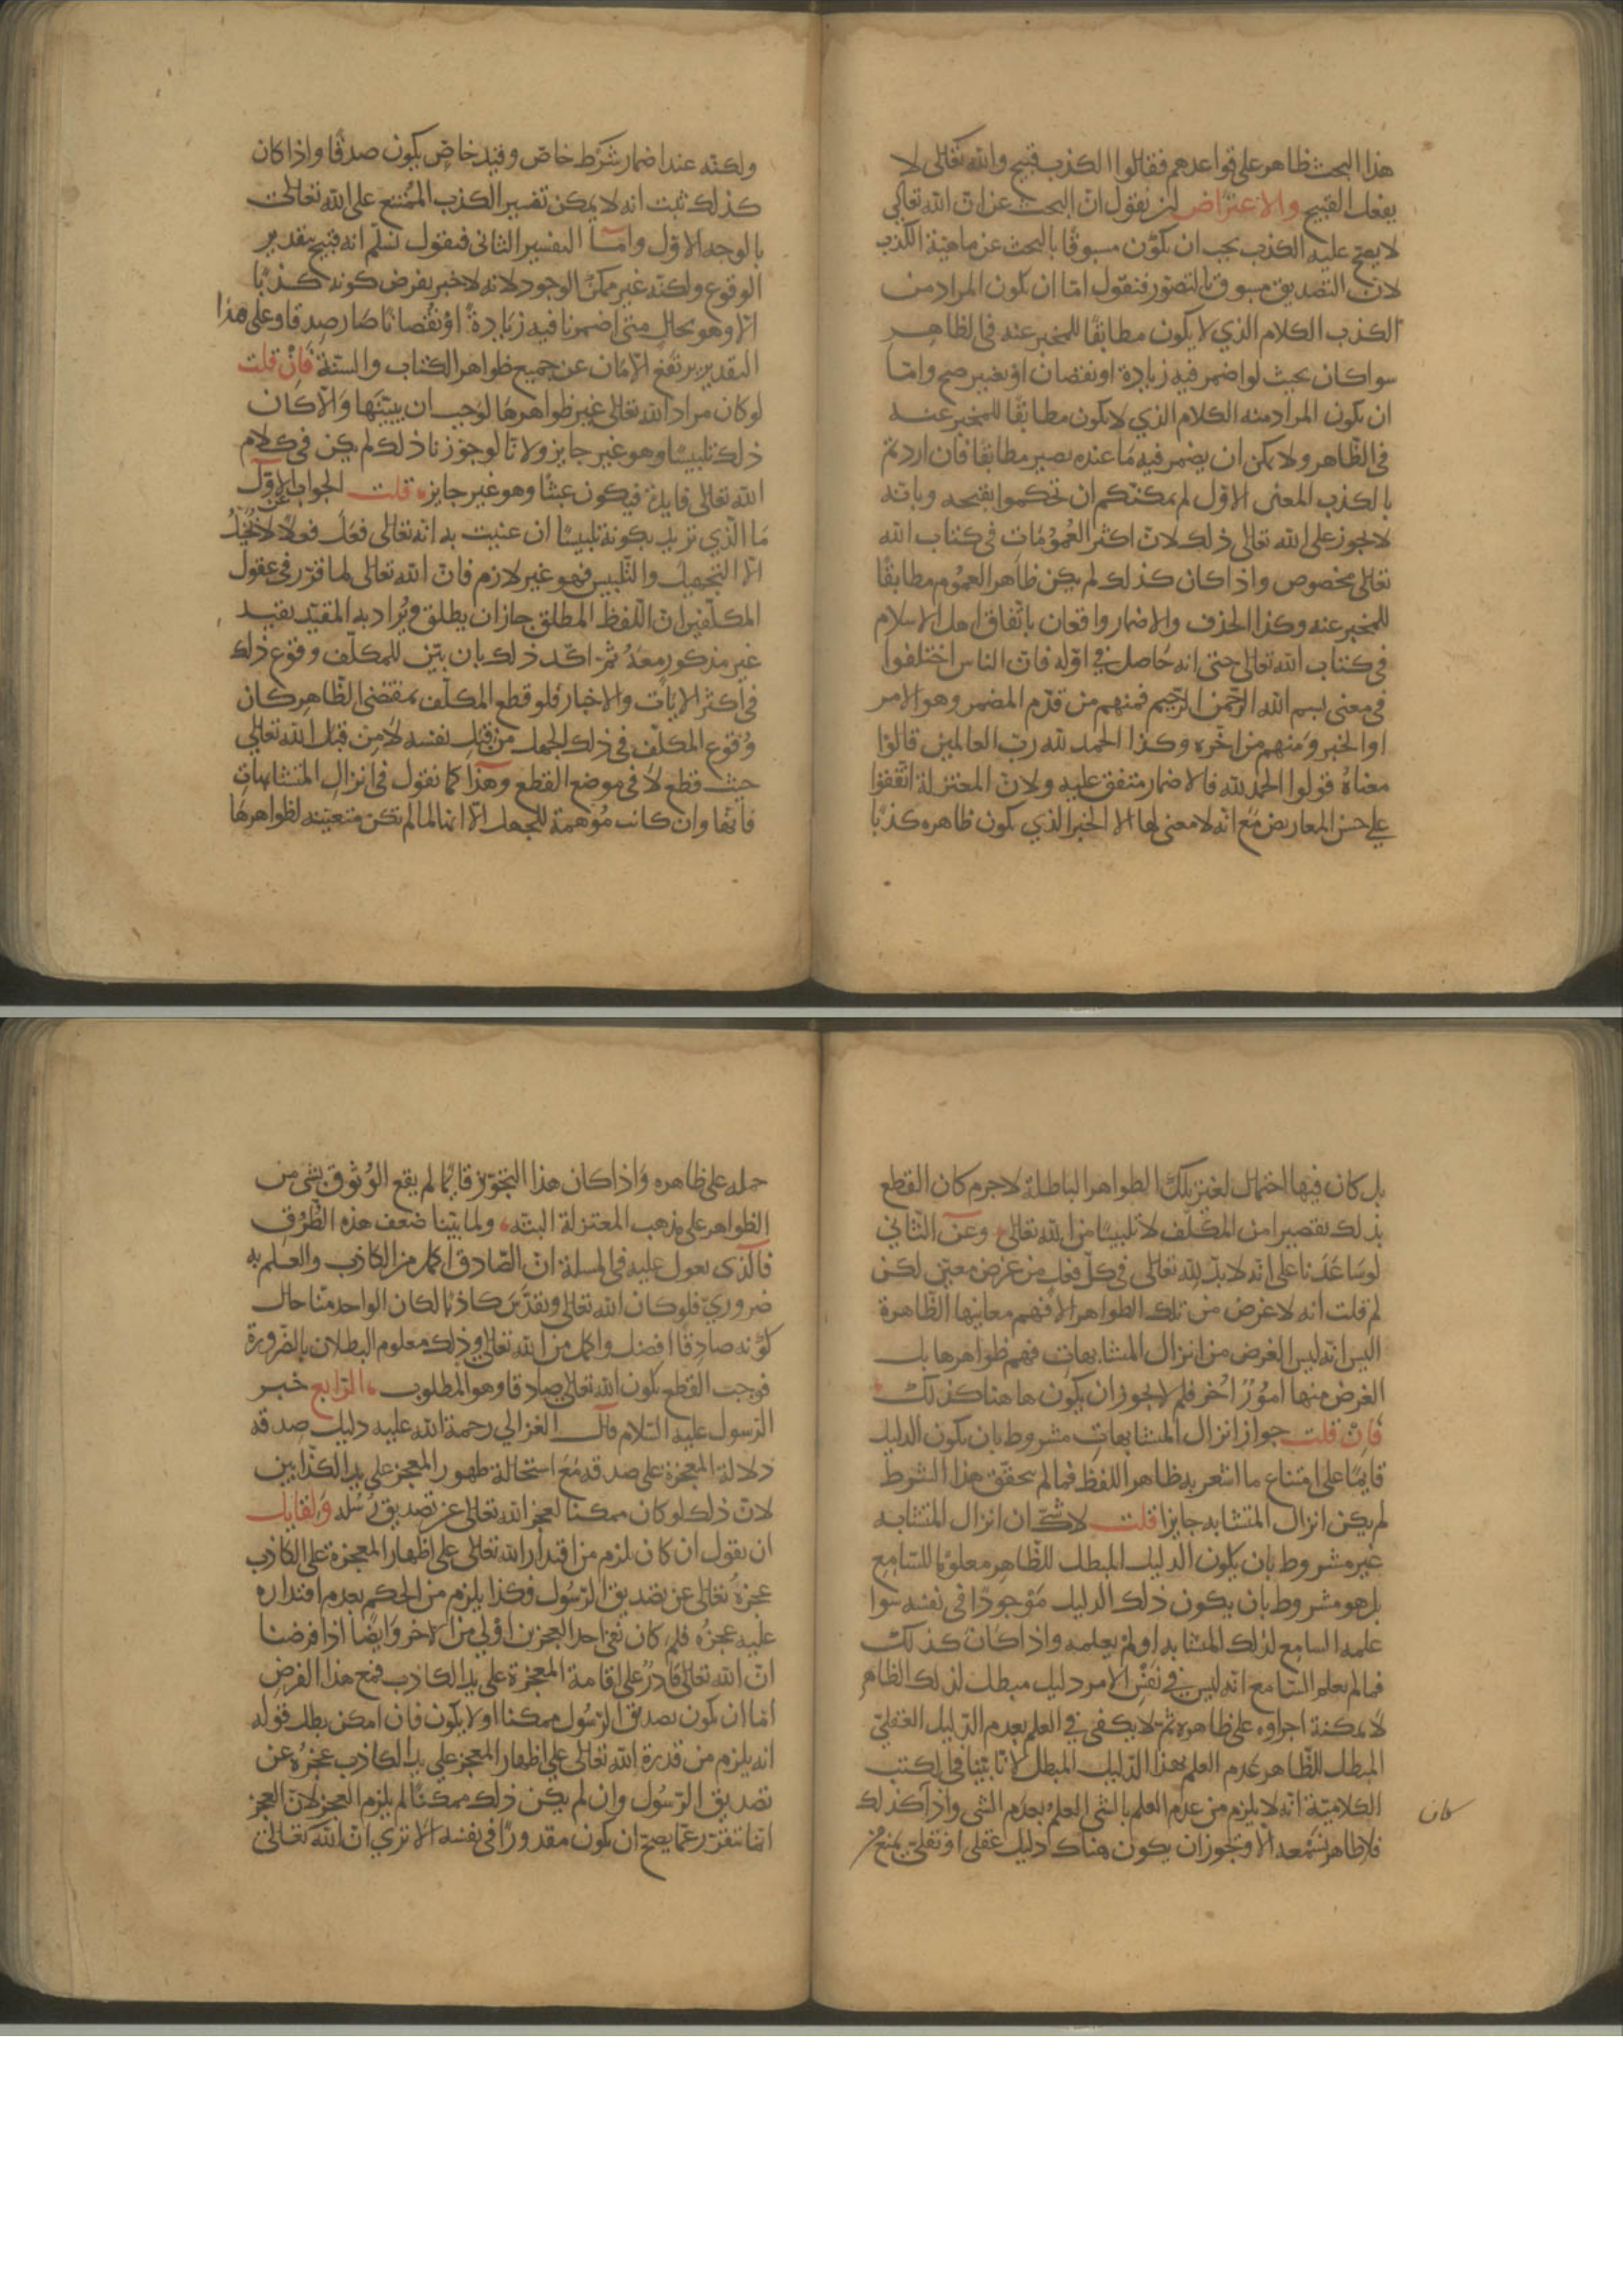 هذا البحث ظاهر على قواعدهم فقالوا الكذب قبيح والله تعالى لا
يفعل القبيح والاعتراض لمن يقول ان البحث عن ان الله تعالى
لا يصح عليه الكذب يجب ان يكون مسبوقا بالبحث عن ماهية الكذب
لان التصديق مسبوق بالتصور فنقول اما ان يكون المراد من
الكذب الكلام الذي لا يكون مطابقا للمخبر عنه في الظاهر
سوا كان بحيث لو اضمر فيه زيادة او نقصان او تغيير صح واما
ان يكون المراد منه الكلام الذي لا يكون مطابقا للمخبر عنه
في الظاهر ولا يمكن ان يضمر فيه ما عنده يصير مطابقا فان اردتم
بالكذب المعنى الاول لم يمكنكم ان تحكموا بقبحه وبانه
لا يجوز على الله تعالى ذلك لان اكثر العمومات في كتاب الله
تعالى مخصوص واذا كان كذلك لم يكن ظاهر العموم مطابقا
للمخبر عنه وكذا الحذف والاضمار واقعان باتفاق اهل الاسلام
في كتاب الله تعالى حتى انه حاصل في اوله فان الناس اختلفوا
في معنى بسم الله الرحمن الرحيم فمنهم من قدم المضمر وهو الامر
او الخبر ومنهم من اخره وكذا الحمد لله رب العالمين قالوا
معناه قولوا الحمد لله فالاضمار متفق عليه ولان المعتزلة اتفقوا
على حسن المعاريض مع انه لا معنى لها الا الخبر الذي يكون ظاهره كذبا
ولكنه عند اضمار شرط خاص وقيد خاص يكون صدقا واذا كان
كذلك ثبت انه لا يمكن تفسير الكذب الممتنع على الله تعالى
بالوجه الاول واما التفسير الثاني فنقول نسلم انه قبيح بتقدير
الوقوع ولكنه غير ممكن الوجود لانه لا خبر يفرض كونه كذبا
الا وهو بحال متى اضمرنا فيه زيادة او نقصانا صار صدقا وعلى هذا
التقدير يرتفع الامان عن جميع ظواهر الكتاب والسنة فان قلت
لو كان مراد الله تعالى غير ظواهرها لوجب ان يبينها والا كان
ذلك تلبيسا وهو غير جايز ولانا لو جوزنا ذلك لم يكن في كلام
الله تعالى فايدة فيكون عبثا وهو غير جايز قلت الجواب عن الاول
ما الذي تريد بكونه تلبيسا ان عنيت به انه تعالى فعل فعلا لا يحتمل
الا التجهيل والتلبيس فهو غير لازم فان الله تعالى لما قرر في عقول
المكلفين ان اللفظ المطلق جاز ان يطلق ويراد به المقيد بقيد
غير مذكور معه ثم اكد ذلك بان بين للمكلف وقوع ذلك
في اكثر الايات والاخبار فلو قطع المكلف بمقتضى الظاهر كان
وقوع المكلف في ذلك الجهل من قبل نفسه لا من قبل الله تعالى
حيث قطع لا في موضع القطع وهذا كما نقول في انزال المتشابهات
فانها وان كانت موهمة للجهل الا انها لما لم تكن متعينة لظواهرها
بل كان فيها احتمال لغير تلك الظواهر الباطلة لا جرم كان القطع
بذلك تقصيرا من المكلف لا تلبيسا من الله تعالى وعن الثاني
لو ساعدنا على انه لا بد لله تعالى في كل فعل من غرض معين لكن
لم قلت انه لا غرض من تلك الظواهر الا فهم معانيها الظاهرة
اليس انه ليس الغرض من انزال المتشابهات فهم ظواهرها بل
الغرض منها امور اخر فلم لا يجوز ان يكون ها هنا كذلك
فان قلت جواز انزال المتشابهات مشروط بان يكون الدليل
قايما على امتناع ما اشعر به ظاهر اللفظ فما لم يتحقق هذا الشرط
لم يكن انزال المتشابه جايزا قلت لا شك ان انزال المتشابه
غير مشروط بان يكون الدليل المبطل للظاهر معلوما للسامع
بل هو مشروط بان يكون ذلك الدليل موجودا في نفسه سوا
علمه السامع لذلك المتشابه او لم يعلمه واذا كان كذلك
فما لم يعلم السامع انه ليس في نفس الامر دليل مبطل لذلك الظاهر
لا يمكنه اجراوه على ظاهره ثم لا يكفي في العلم بعدم الدليل العقلي
المبطل للظاهر عدم العلم بهذا الدليل المبطل لانا بينا في الكتب
الكلامية انه لا يلزم من عدم العلم بالشي العلم بعدم الشي واذا كذلك
كان
فلا ظاهر نسمعه الا ونجوز ان يكون هناك دليل عقلي او نقلي يمنع من
حمله على ظاهره واذا كان هذا التجويز قايما لم يقع الوثوق بشي من
الظواهر على مذهب المعتزلة البتة ولما بينا ضعف هذه الطرق
فالذى نعول عليه في المسلة ان الصادق اكمل من الكاذب والعلم به
ضروري فلو كان الله تعالى وتقدس كاذبا لكان الواحد منا حال
كونه صادقا افضل واكمل من الله تعالى وذلك معلوم البطلان بالضرورة
فوجب القطع بكون الله تعالى صادقا وهو المطلوب الرابع خبر
الرسول عليه السلام قال الغزالي رحمة الله عليه دليل صدقه
دلالة المعجزة على صدقه مع استحالة ظهور المعجز على يد الكذابين
لان ذلك لو كان ممكنا لعجز الله تعالى عن تصديق رسله ولقايل
ان يقول ان كان يلزم من اقتدار الله تعالى على اظهار المعجزة على الكاذب
عجزه تعالى عن تصديق الرسول فكذا يلزم من الحكم بعدم اقتداره
عليه عجزه فلم كان نفي احد العجزين اولى من الاخر وايضا اذا فرضنا
ان الله تعالى قادر على اقامة المعجزة على يد الكاذب فمع هذا الفرض
اما ان يكون تصديق الرسول ممكنا او لا يكون فان امكن بطل قوله
انه يلزم من قدرة الله تعالى على اظهار المعجز على يد الكاذب عجزه عن
تصديق الرسول وان لم يكن ذلك ممكنا لم يلزم العجز لان العجز
انما يتقرر عما يصح ان يكون مقدورا في نفسه الا تري ان الله تعالى